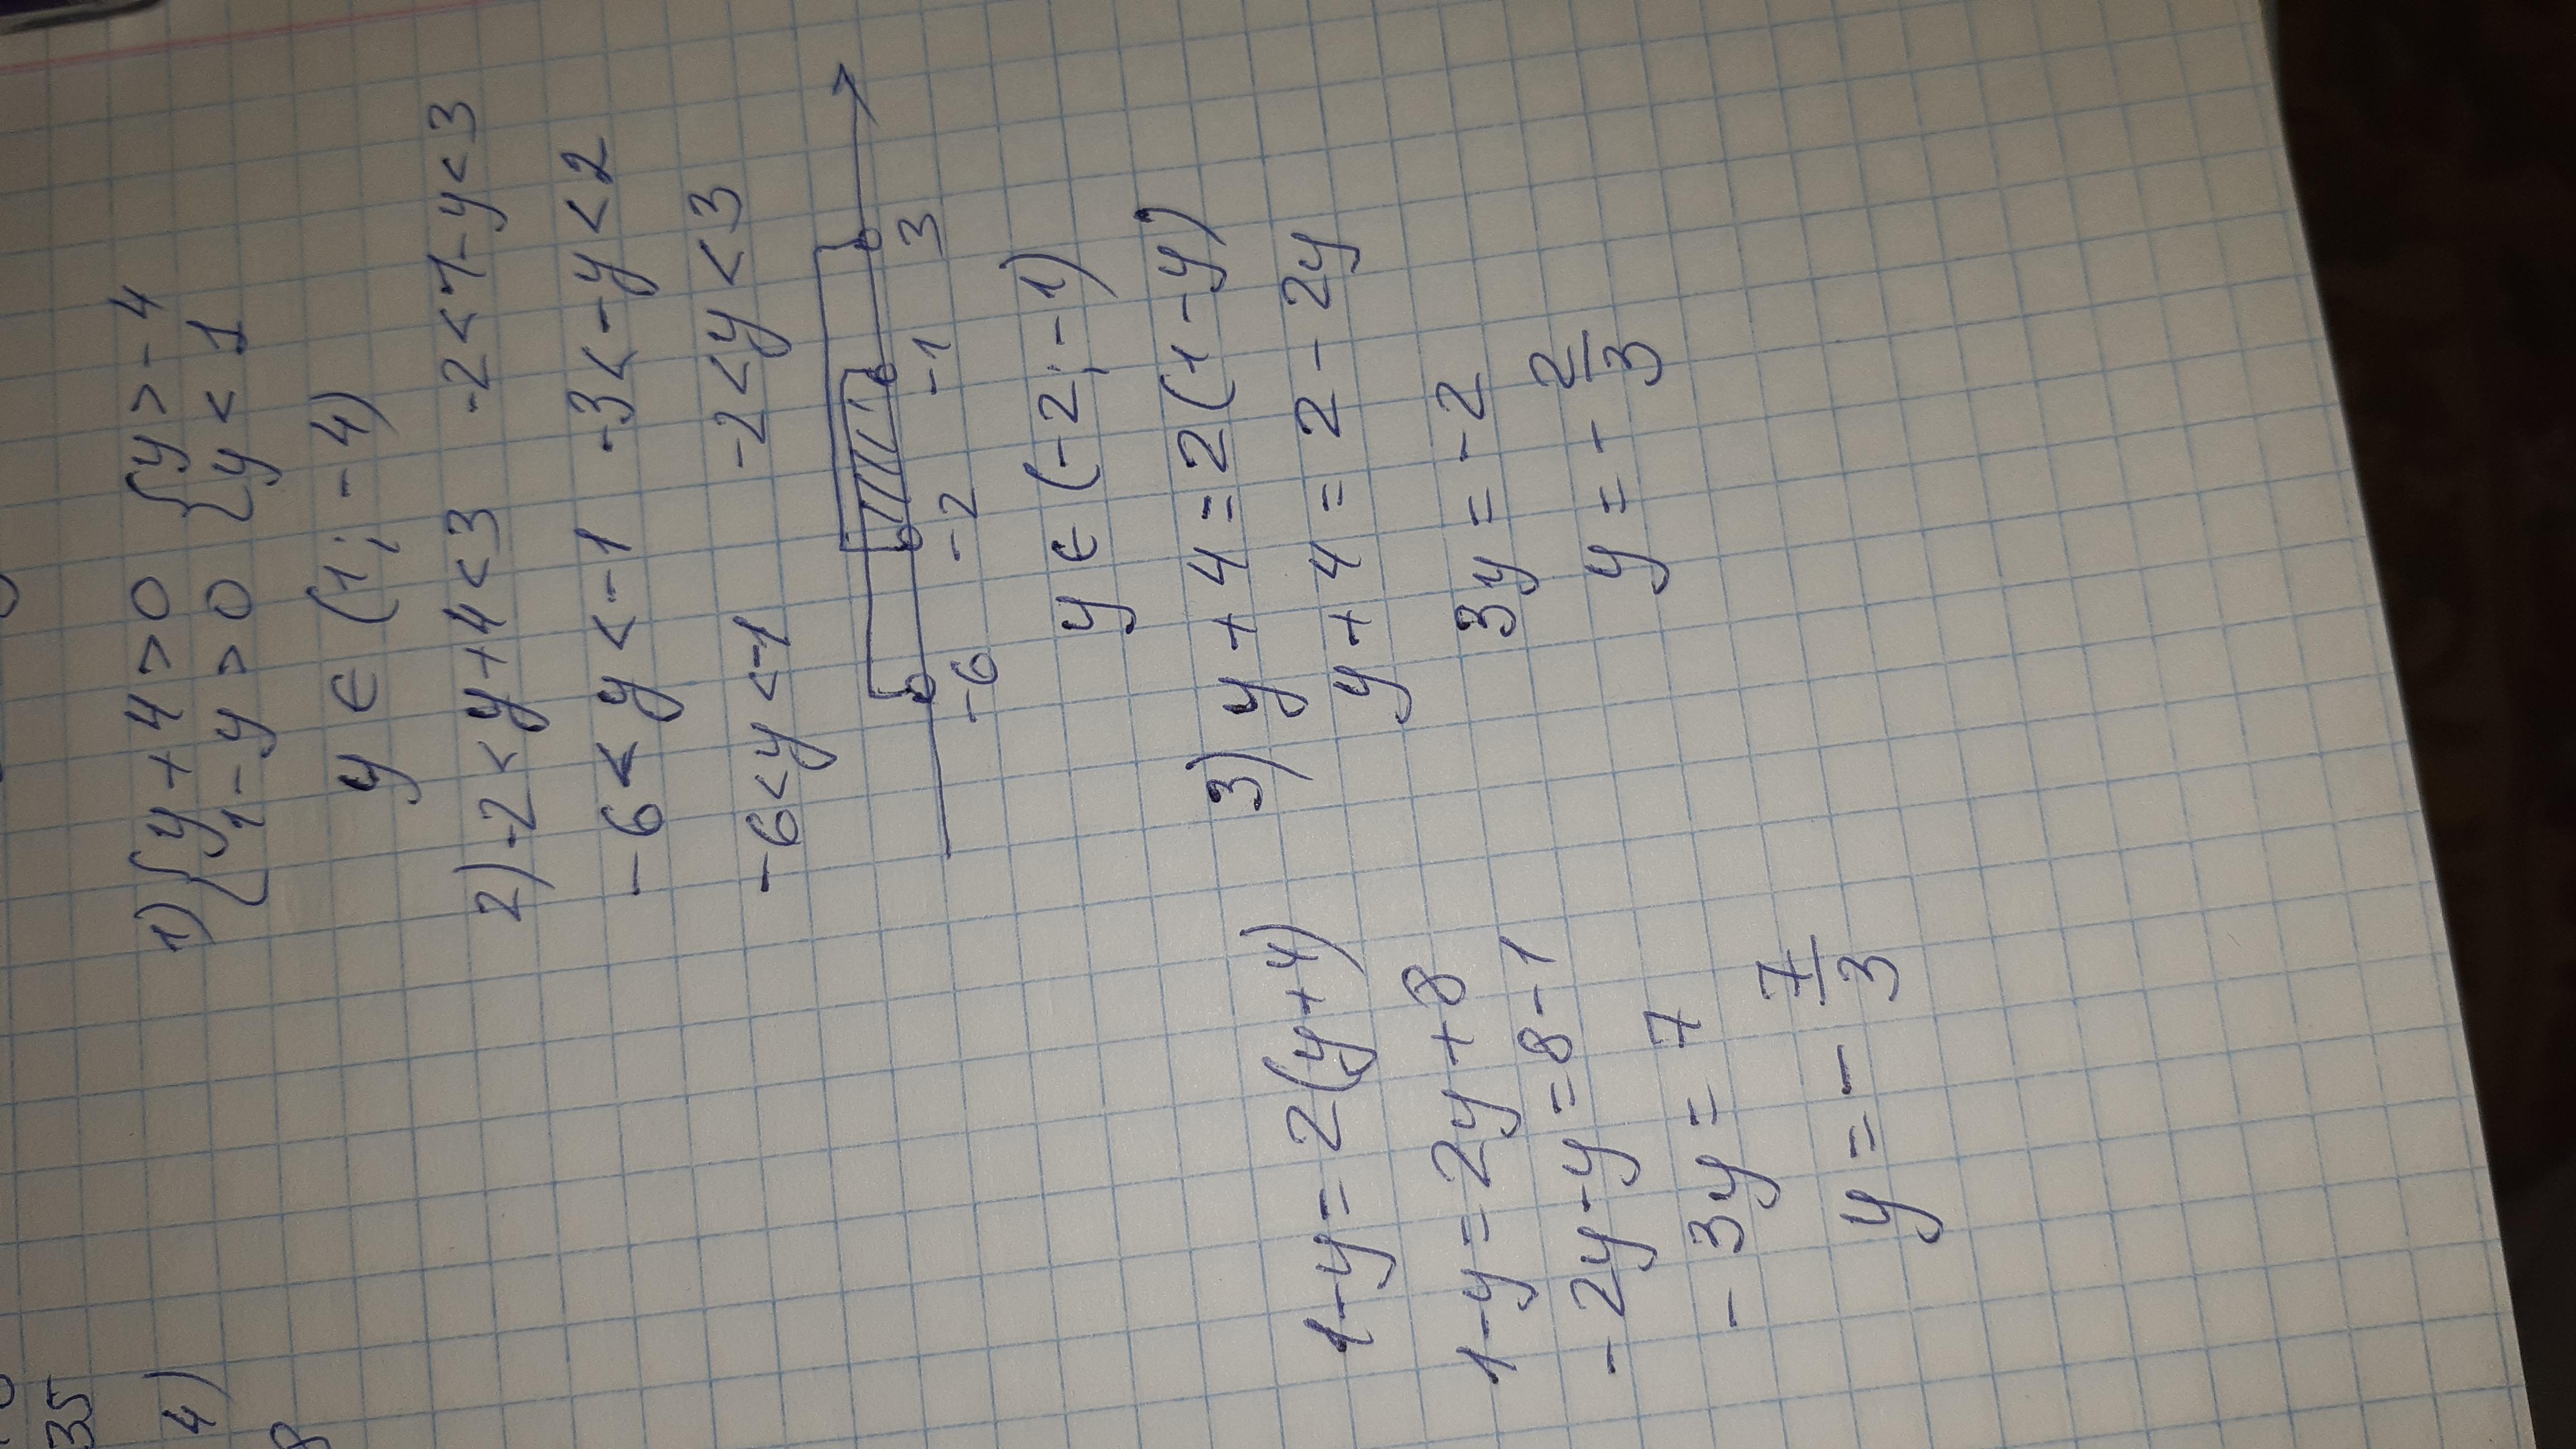 1) {y + 4 > 0 {y > - 4
1 - y > 0 y < 1
y ∈ (1; - 4)
2) -2 < y + 4 < 3 -2 < 1 - y < 3
-6 < y < -1 -3 < -y < 2
-6 < y < -1 -2 < y < 3
-6 -2 -1 3
y ∈ (-2; -1)
3) y + 4 = 2(1 - y)
y + 4 = 2 - 2y
3y = -2
y = - 2/3
1 - y = 2(y + 4)
1 - y = 2y + 8
- 2y - y = 8 - 1
- 3y = 7
y = - 7/3
35
4)
8